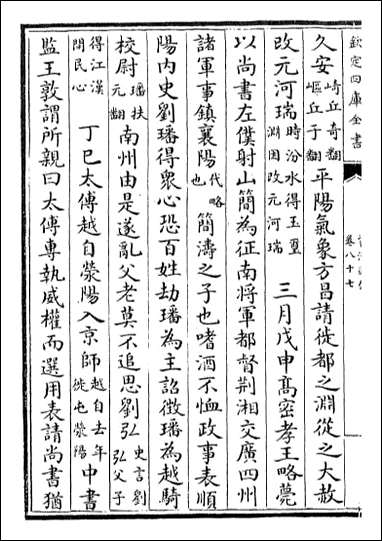 欽定四庫全書
卷八十七
久安崎丘奇翻嶇丘于翻平陽氣象方昌請徙都之淵從之大赦
改元河瑞時汾水得玉璽淵因改元河瑞三月戊申髙密孝王略薨
以尚書左僕射山簡為征南將軍都督荆湘交廣四州
諸軍事鎮襄陽代略也簡濤之子也嗜酒不恤政事表順
陽内史劉璠得衆心恐百姓劫璠為主詔徵璠為越騎
校尉璠扶元翻南州由是遂亂父老莫不追思劉弘史言劉弘父子
得江漢間民心丁巳太傅越自滎陽入京師越自去年徙屯滎陽中書
監王敦謂所親曰太傅專執威權而選用表請尚書猶